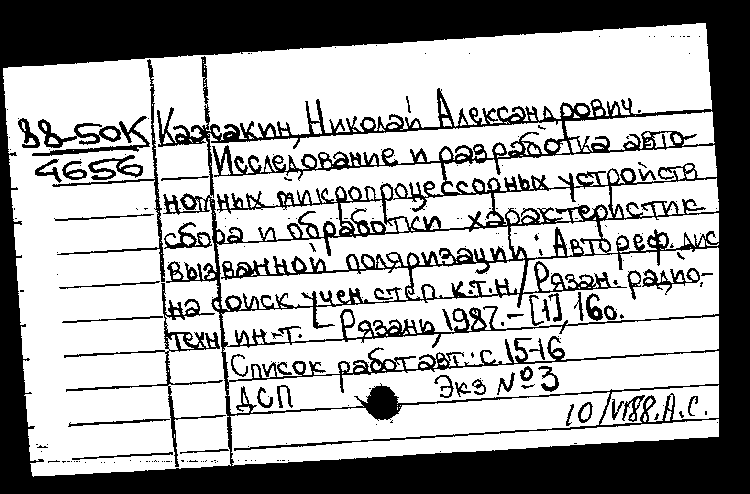 88-50К
4656
Кажакин, Николай Александрович.
Исследование и разработка авто-
номных микропроцессорных устройств
сбора и обработки характеристик
вызванной поляризации: Автореф. дис
на соиск. учен. степ. к.т.н./Рязан. радио-
техн. ин-т. – Рязань, 1987. – [1], 16 с.
Список работ авт.: с. 15-16
ДСП Экз №3
10/VI88. А.С.